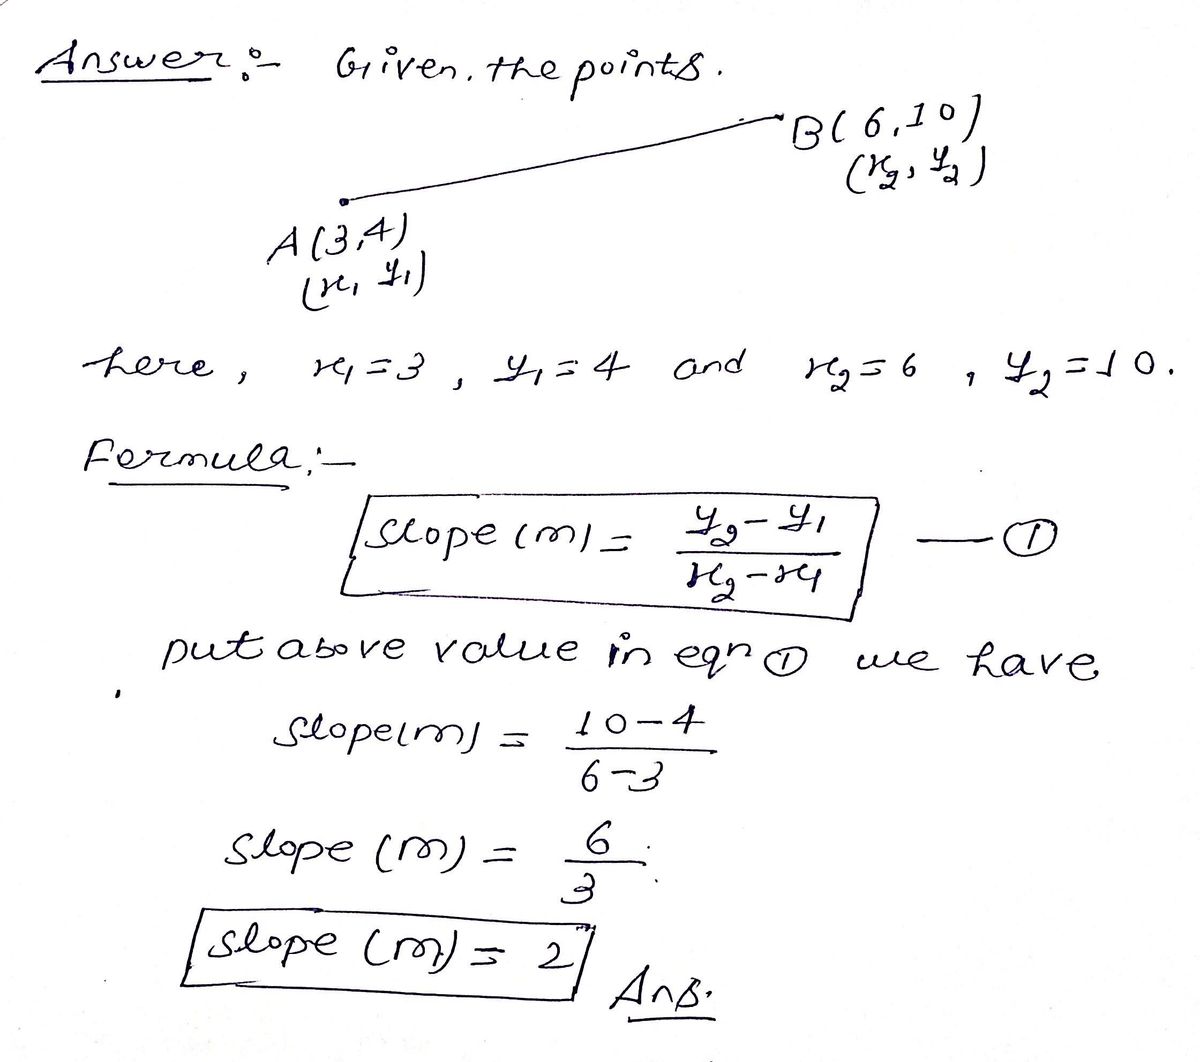 Answer :- Given, the points.
B(6,10)
(x₂, y₂)
A(3,4)
(x₁ y₁)
here, x₁=3, y₁=4 and x₂=6, y₂=10.
Formula:-
slope (m) = y₂-y₁ / x₂-x₁ —①
put above value in eqn ① we have
slope(m) = 10-4 / 6-3
slope (m) = 6 / 3
slope (m) = 2
Ans.